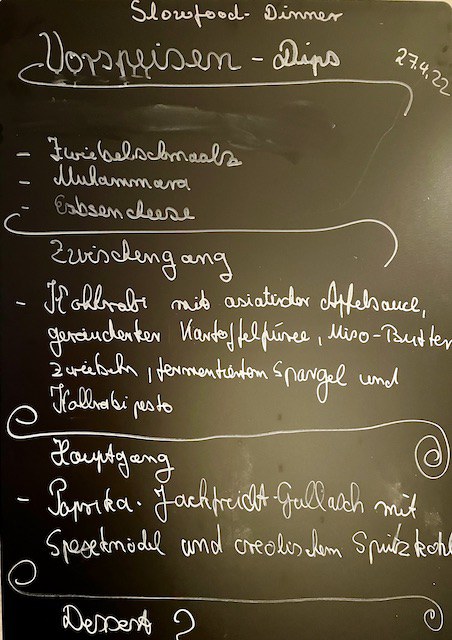 Slowfood-Dinner
Vorspeisen - Dips
27.4.22
- Zwiebelschmaalz
- Muhammara
- Erbsencheese
Zwischengang
- Kohlrabi mit asiatischer Apfelsauce,
geräucherter Kartoffelpüree, Miso-Butter
zwiebeln, fermentiertem Spargel und
Kohlrabipesto
Hauptgang
- Paprika-Jackfrucht-Gullasch mit
und creolischem Spitzkohl
Dessert ?